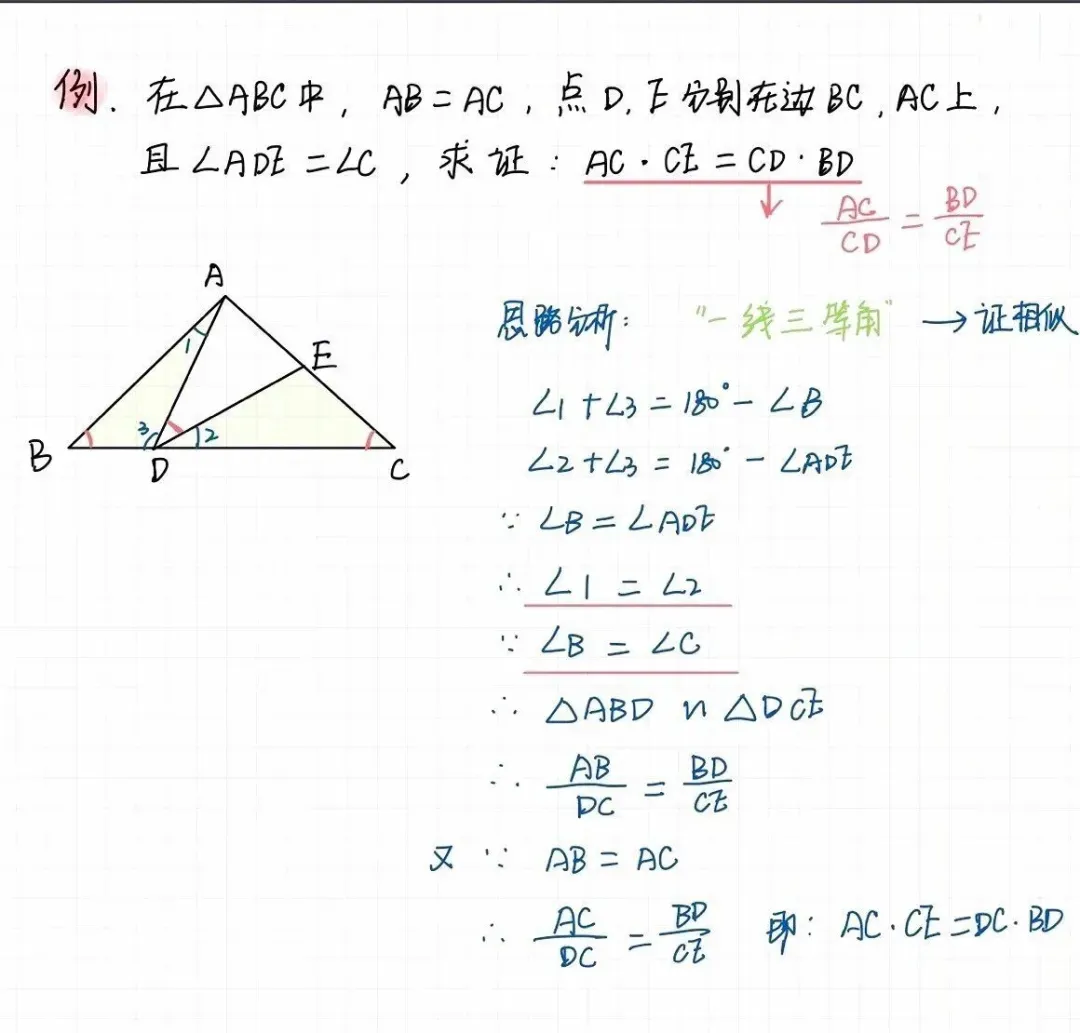 例. 在△ABC中, AB=AC, 点D, E分别在边BC, AC上,
且∠ADE=∠C, 求证: AC·CE=CD·BD
AC/CD = BD/CE
A
1
E
B
3
2
D
C
思路分析: "一线三等角" → 证相似
∠1+∠3=180°-∠B
∠2+∠3=180°-∠ADE
∵ ∠B=∠ADE
∴ ∠1=∠2
∵ ∠B=∠C
∴ △ABD∽△DCE
∴ AB/DC = BD/CE
又∵ AB=AC
∴ AC/DC = BD/CE 即: AC·CE=DC·BD